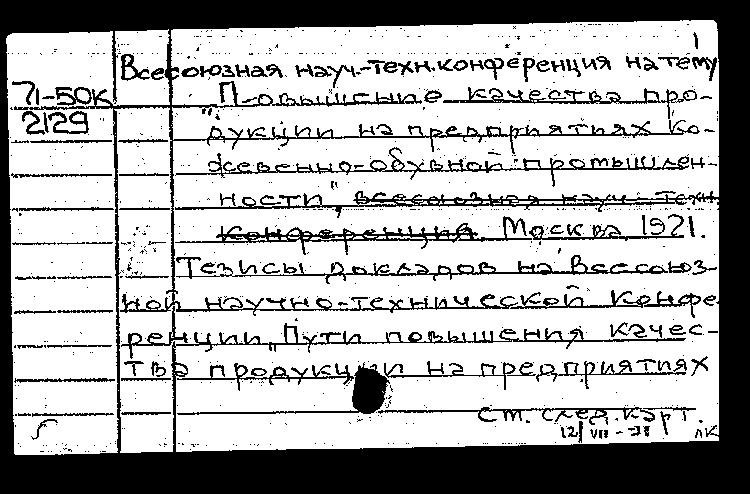 1
Всесоюзная науч.-техн.конференция на тему
71-50к
2129
"Повышение качества про-
дукции на предприятиях ко-
жевенно-обувной промышлен-
ности", всесоюзная науч.-техн.
конференция. Москва, 1921.
Тезисы докладов на Всесоюз-
ной научно-технической конфе-
ренции "Пути повышения качес-
тва продукции на предприятиях
См. след. карт.
12/VII-71 ЛК